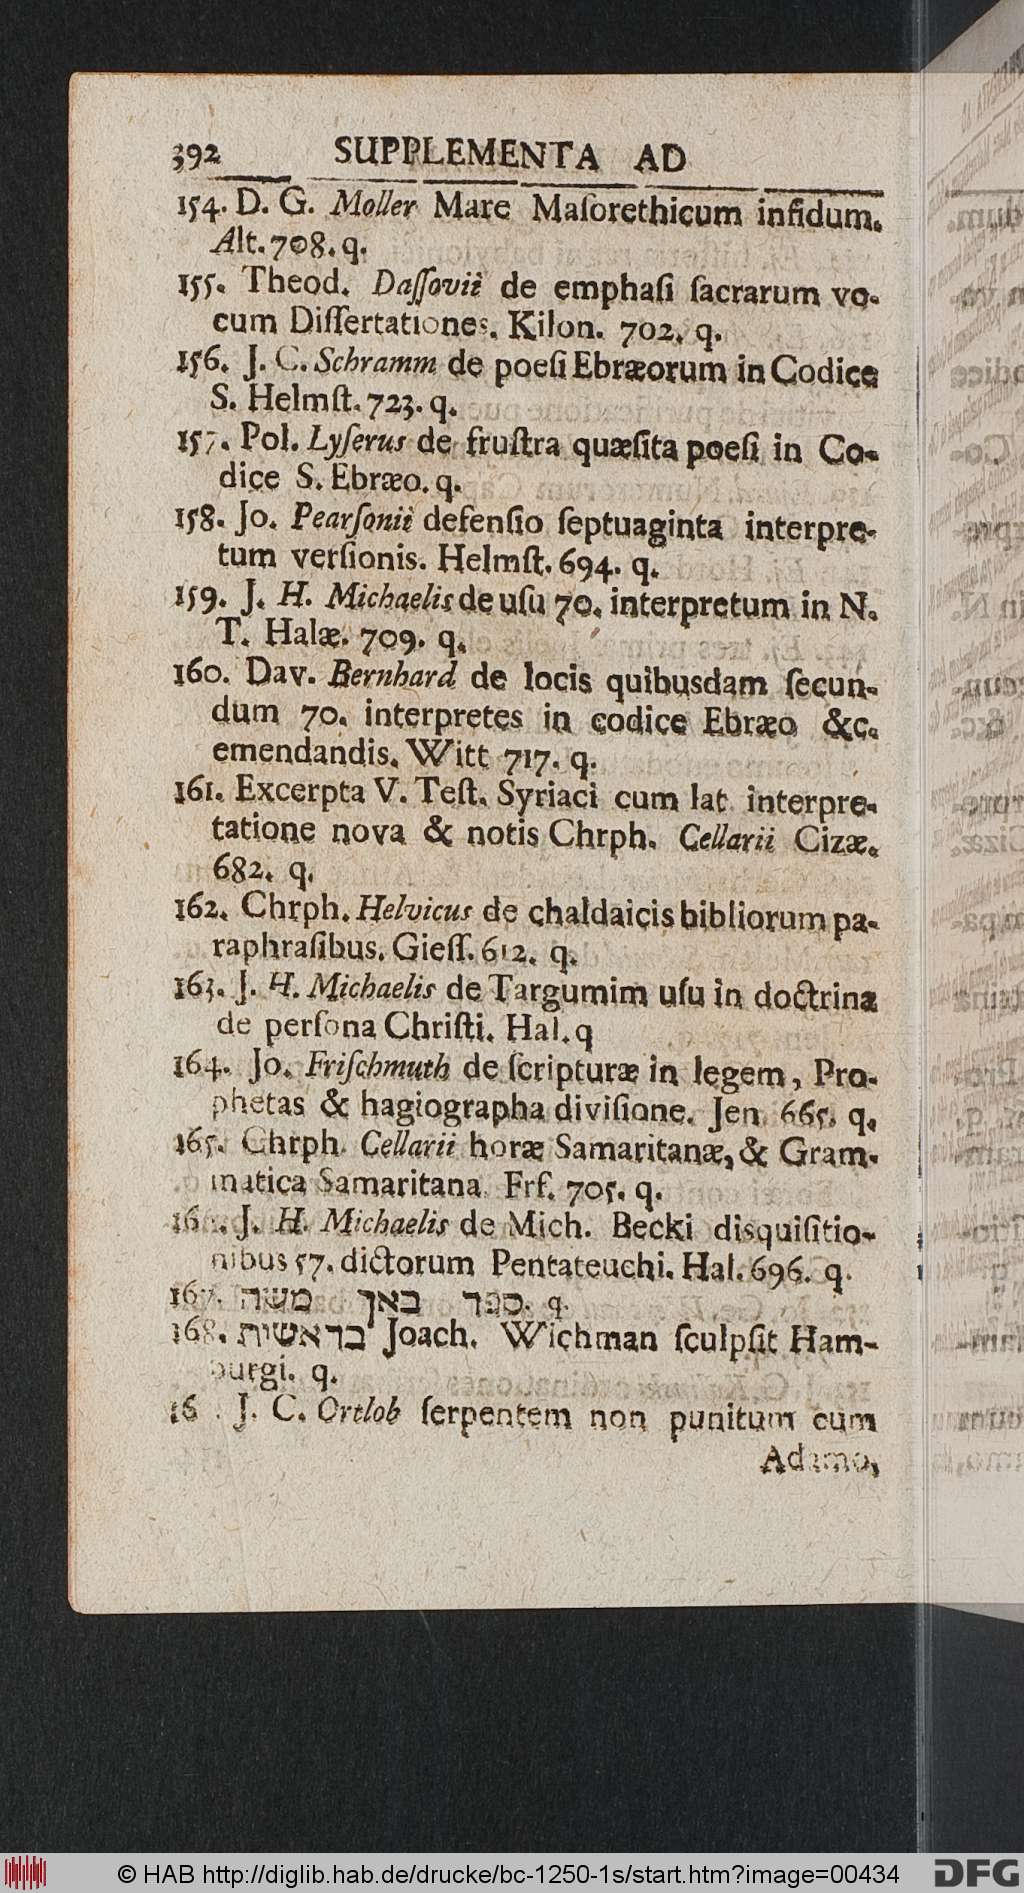 392 SUPPLEMENTA AD
154. D. G. Moller Mare Maſorethicum infidum.
Alt. 708. q.
155. Theod. Daſſovii de emphaſi ſacrarum vo-
cum Diſſertationes. Kilon. 702. q.
156. J. C. Schramm de poeſi Ebræorum in Codice
S. Helmſt. 723. q.
157. Pol. Lyſerus de fruſtra quæſita poeſi in Co-
dice S. Ebræo. q.
158. Jo. Pearſonii defenſio ſeptuaginta interpre-
tum verſionis. Helmſt. 694. q.
159. J. H. Michaelis de uſu 70. interpretum in N.
T. Halæ. 709. q.
160. Dav. Bernhard de locis quibusdam ſecun-
dum 70. interpretes in codice Ebræo &c.
emendandis. Witt 717. q.
161. Excerpta V. Teſt. Syriaci cum lat interpre-
tatione nova & notis Chrph. Cellarii Cizæ.
682. q.
162. Chrph. Helvicus de chaldaicis bibliorum pa-
raphraſibus. Gieſſ. 612. q.
163. J. H. Michaelis de Targumim uſu in doctrina
de perſona Chriſti. Hal. q
164. Jo. Friſchmuth de ſcripturæ in legem, Pro-
phetas & hagiographa diviſione. Jen 665. q.
165. Chrph. Cellarii horæ Samaritanæ, & Gram-
matica Samaritana. Frf. 705. q.
16 . J. H. Michaelis de Mich. Becki disquiſitio-
nibus 57. dictorum Pentateuchi. Hal. 696. q.
167. ספר באך משה. q.
168. בראשית Joach. Wichman ſculpſit Ham-
burgi. q.
16 . J. C. Ortlob ſerpentem non punitum cum
Adamo,
© HAB http://diglib.hab.de/drucke/bc-1250-1s/start.htm?image=00434
DFG